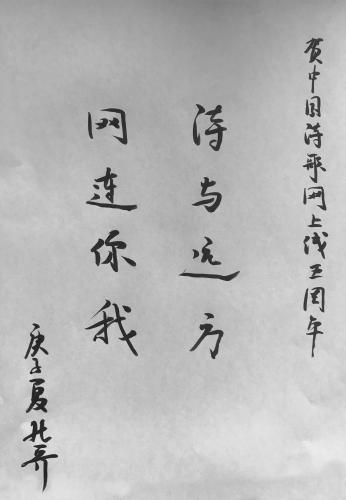 贺中国诗歌网上线五周年
诗与远方
网连你我
庚子夏